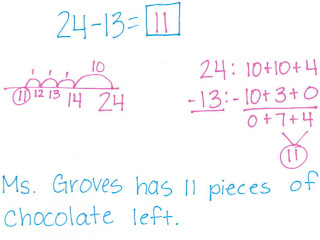 24-13= 11
1 1 1 10
11 12 13 14 24
24: 10+10+4
-13:- 10+3+0
0+7+4
11
Ms. Groves has 11 pieces of
chocolate left.